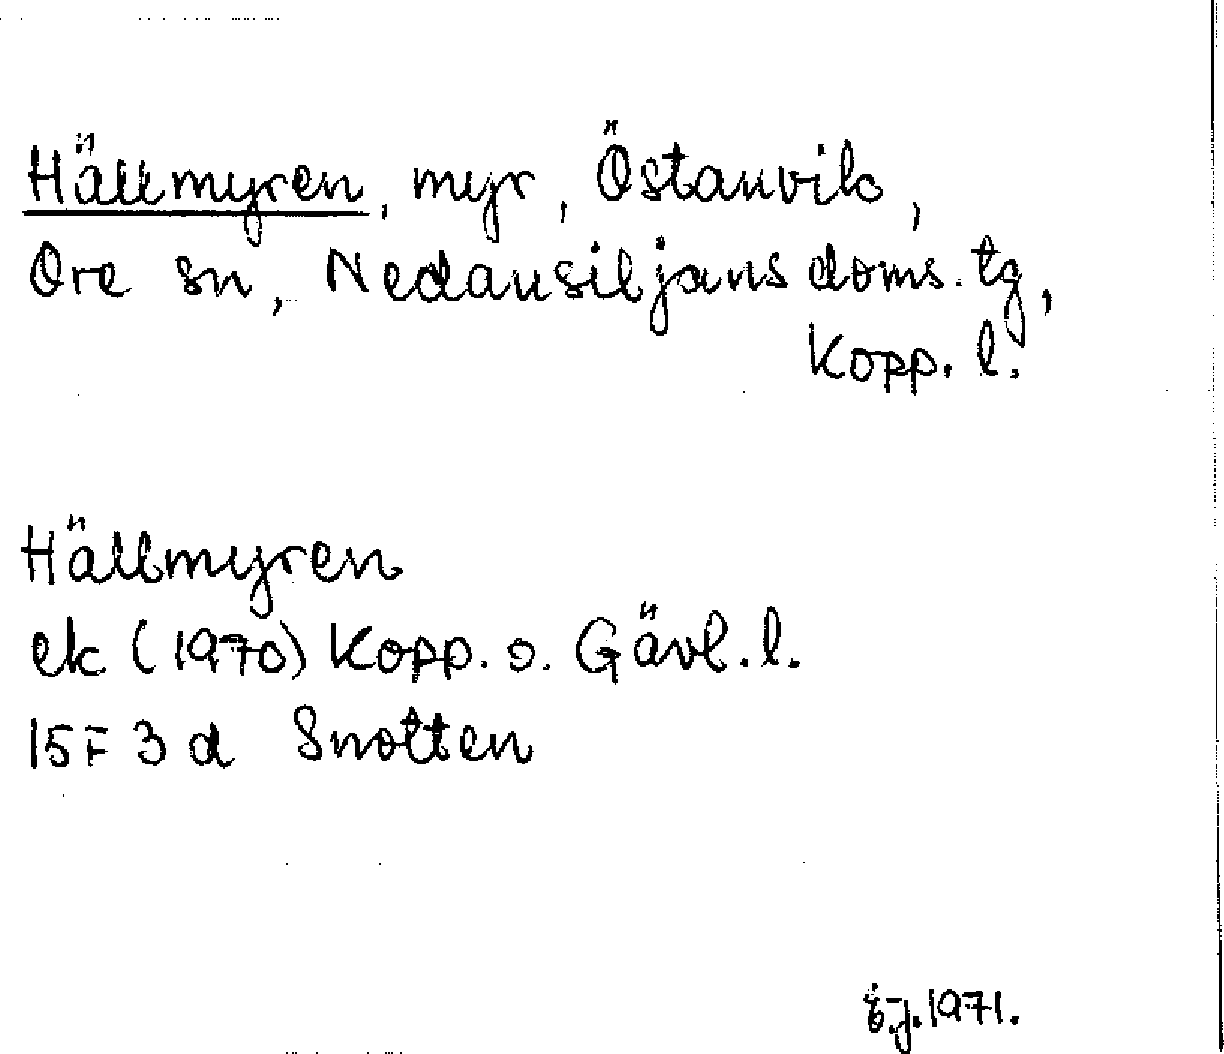 Hällmyren, myr, Östanvik,
Ore sn, Nedansiljans doms.tg,
Kopp. l.
Hällmyren
ek (1970) Kopp. o. Gävl. l.
15F 3d Snotten
1971.